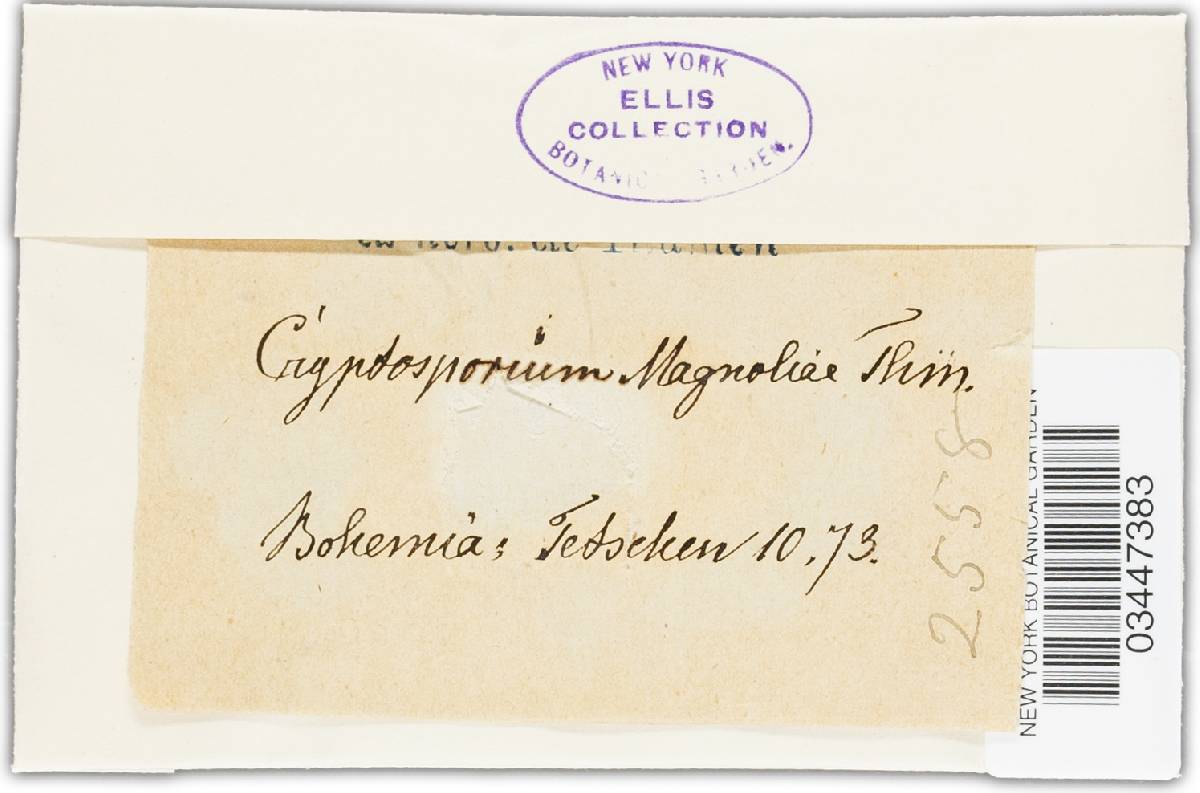 NEW YORK
ELLIS
COLLECTION
BOTANIC GARDEN.
ex herb. de Thümen
Cryptosporium Magnoliae Thüm.
Bohemia: Tetschen 10.73.
2558
NEW YORK BOTANICAL GARDEN
03447383